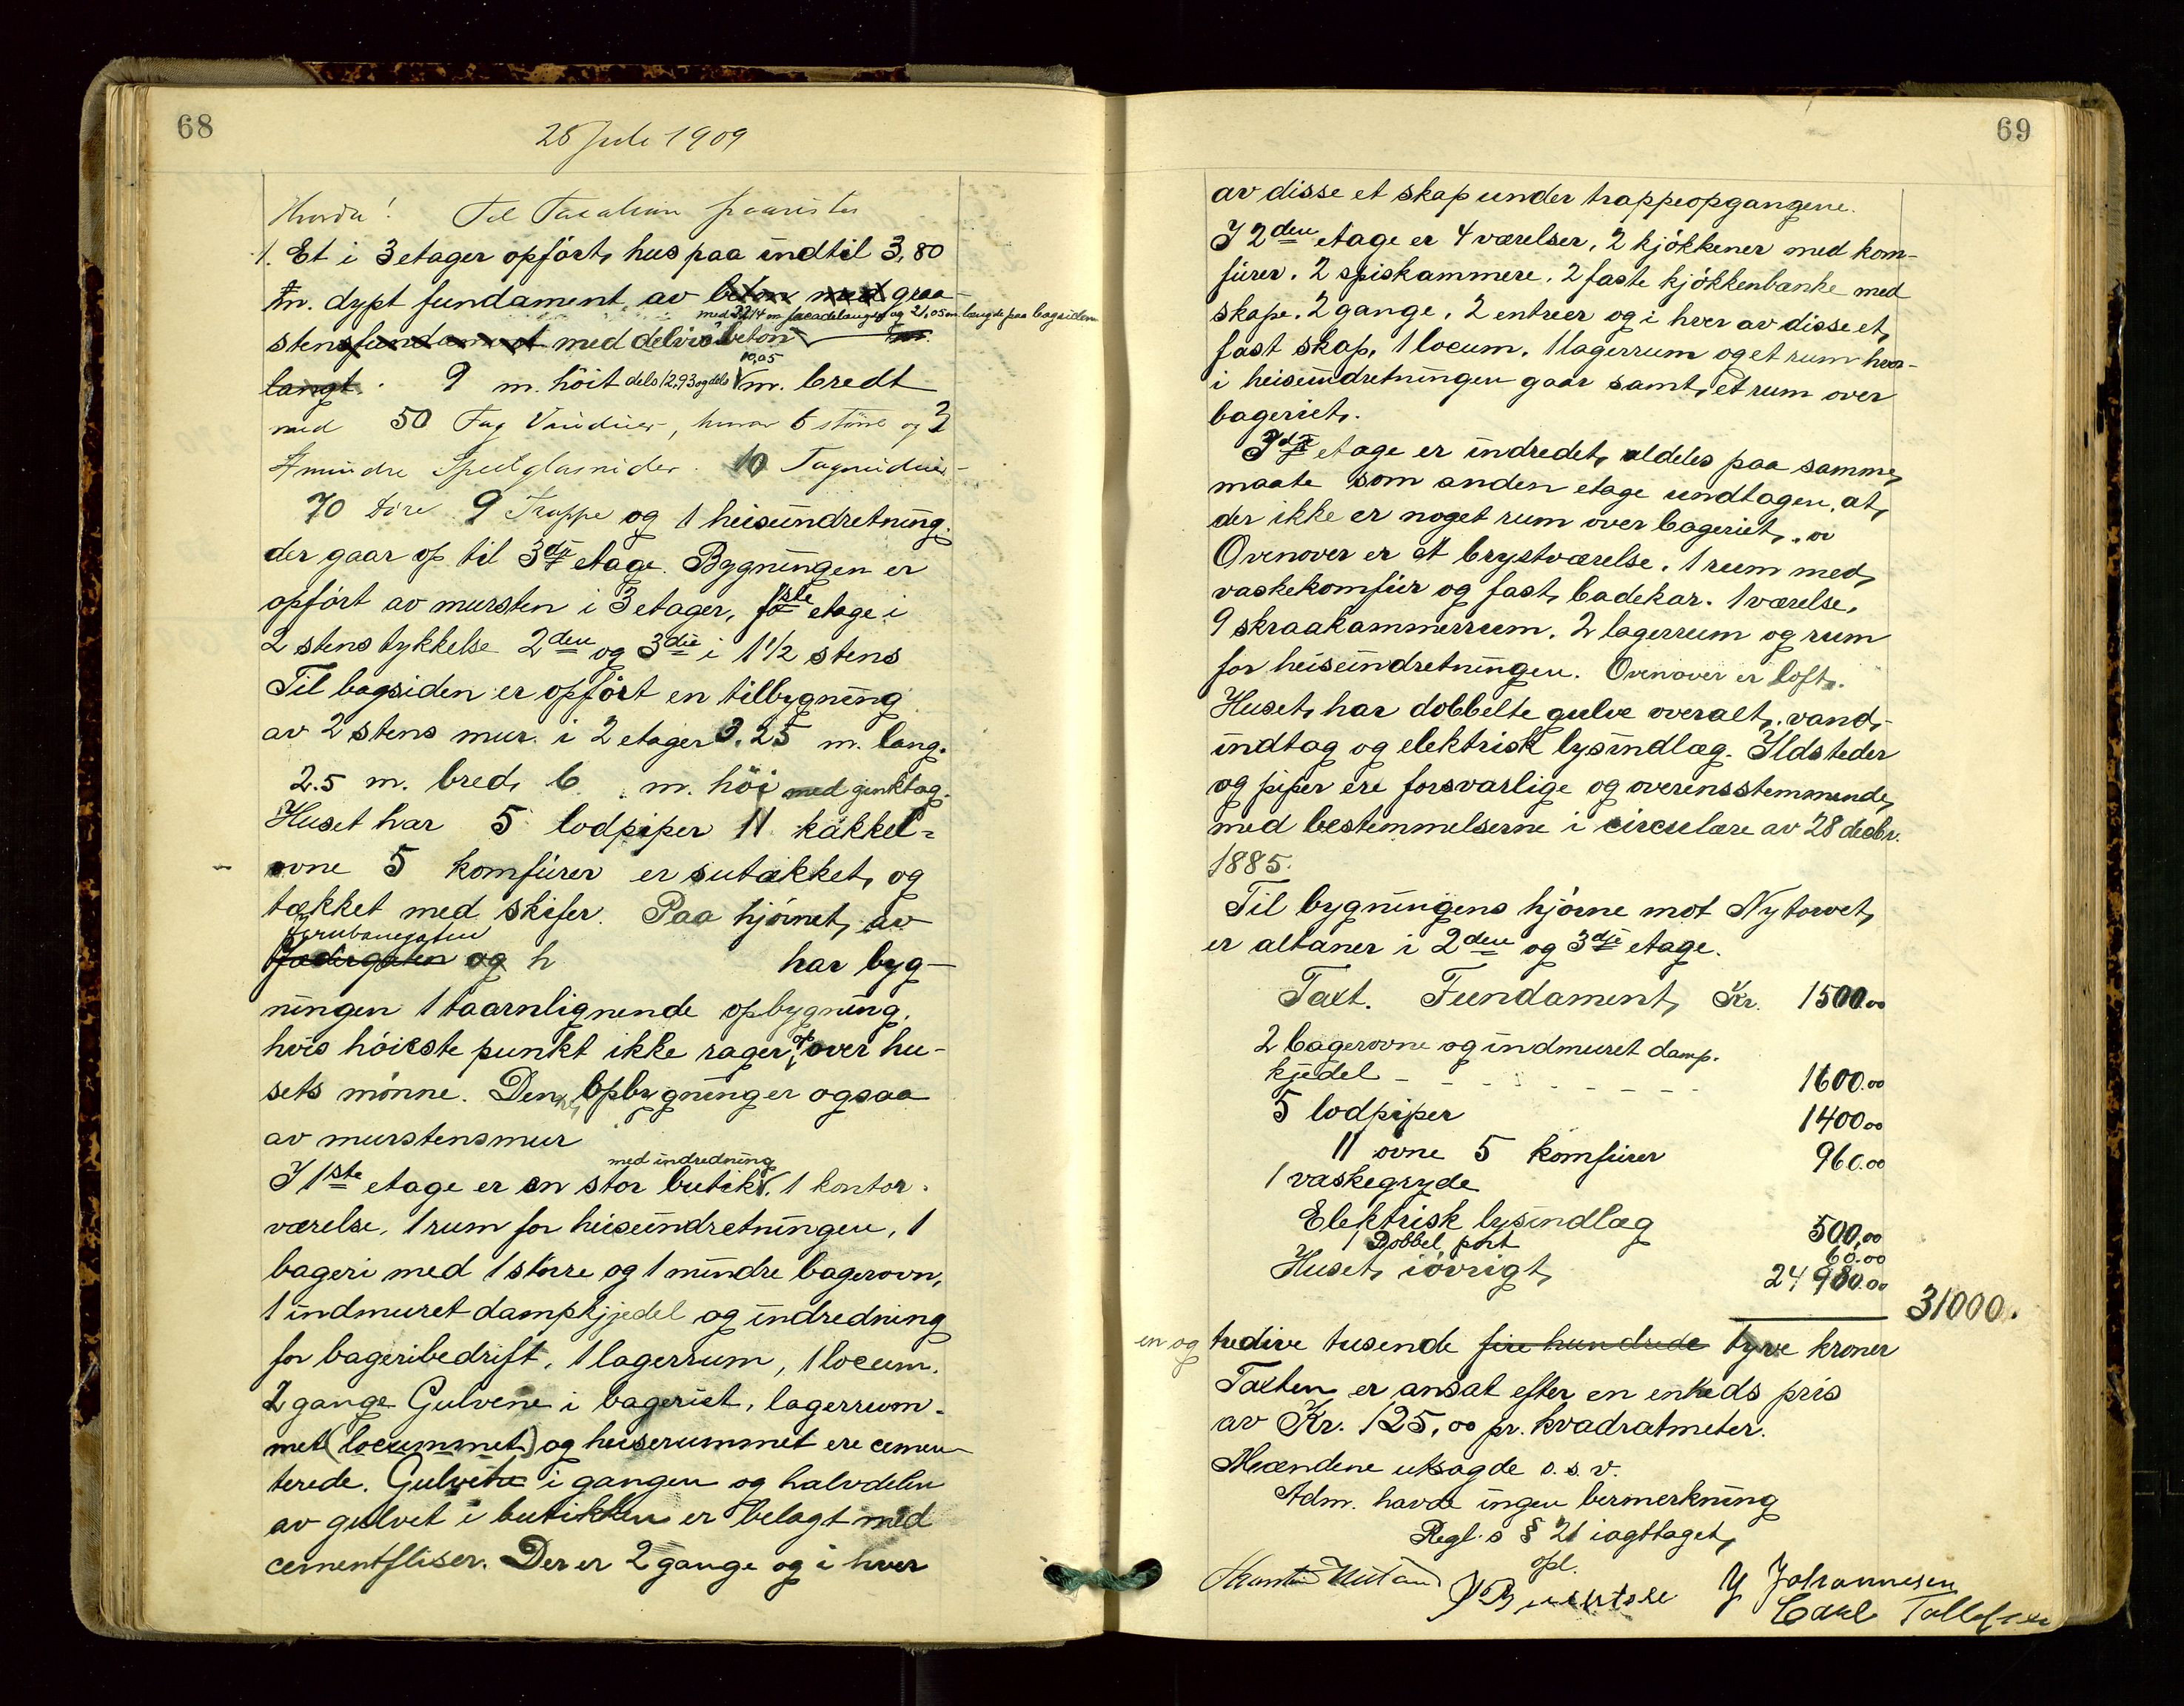 68
28 Juli 1909
Hvorda! Til Taxation paavistes
1. Et i 3 etager opført hus paa indtil 3,80
m. dypt fundament av beton med graa-
med 22,14 m facadelængde og 21,05 m længde paa bagsiden
stensfundament med delvis beton
langt. 9 m. høit dels 12,93 og dels 10,05 m. bredt
med 50 Fag Vinduer, hvorav 6 større og 2
mindre Speilglasruder. 10 Tagvinduer
70 døre 9 Trappe og 1 heiseindretning.
der gaar op til 3die etage. Bygningen er
opført av mursten i 3 etager, 1ste etage i
2 stens tykkelse 2den og 3die i 1 1/2 stens
Til bagsiden er opført en tilbygning
av 2 stens mur i 2 etager 3.25 m. lang.
2.5 m. bred, 6 m. høi med zinktag.
Huset har 5 lodpiper 11 kakkel=
ovne 5 komfürer er sutækket, og
tækket med skifer. Paa hjørnet, av
Jernbanegaten
Jædergaten og h har byg-
ningen 1 taarnlignende opbygning,
hvis høieste punkt ikke rager op over hu-
sets mønne. Den opbygning er ogsaa
av murstensmur
med indredning
I 1ste etage er en stor butik. 1 kontor.
værelse, 1 rum for heiseindretningen, 1
bageri med 1 større og 1 mindre bagerovn,
1 indmuret dampkjedel og indredning
for bageribedrift, 1 lagerrum, 1 locum.
2 gange Gulvene i bageriet, lagerrum-
met (locummet) og heiserummet ere cemen-
terede. Gulvete i gangen og halvdelen
av gulvet i butikken er belagt med
cementfliser. Der er 2 gange og i hver
69
av disse et skap under trappeopgangene.
I 2den etage er 4 værelser, 2 kjøkkener med kom-
fürer. 2 spiskammere. 2 faste kjøkkenbænke med
skape. 2 gange. 2 entreer og i hver av disse et,
fast skap. 1 locum. 1 lagerrum og et rum hvor-
i heiseindretningen gaar samt, et rum over
bageriet.
3die etage er indredet, aldeles paa samme,
maate som anden etage undtagen, at,
der ikke er noget rum over bageriet,
Ovenover er et brystværelse. 1 rum med,
vaskekomfür og fast, badekar. 1 værelse.
9 skraakammerrum. 2 lagerrum og rum
for heiseindretningen. Ovenover er loft.
Huset, har dobbelte gulve overalt, vand-
indtag og elektrisk lysindlæg. Ildsteder
og piper ere forsvarlige og overensstemmende,
med bestemmelserne i circulære av 28 decbr.
1885.
Til bygningens hjørne mot Nytorvet,
er altaner i 2den og 3die etage.
Taxt. Fundament, Kr. 1500.00
2 bagerovne og indmuret damp-
kjedel - - - - - - - - 1600.00
5 lodpiper 1400.00
11 ovne 5 komfürer 960.00
1 vaskegryde
Elektrisk lysindlæg 500.00
1 Dobbel port 60.00
Huset, iøvrigt, 24980.00
31000.
en og tredive tusende fire hundrede tyve kroner
Taxten er ansat efter en enheds pris
av Kr. 125,00 pr. kvadratmeter.
Mændene utsagde o.s.v.
Adm. havde ingen bemerkning
Regl.s § 21 iagttaget,
opl.
Johannesen
Carl Tollefsen